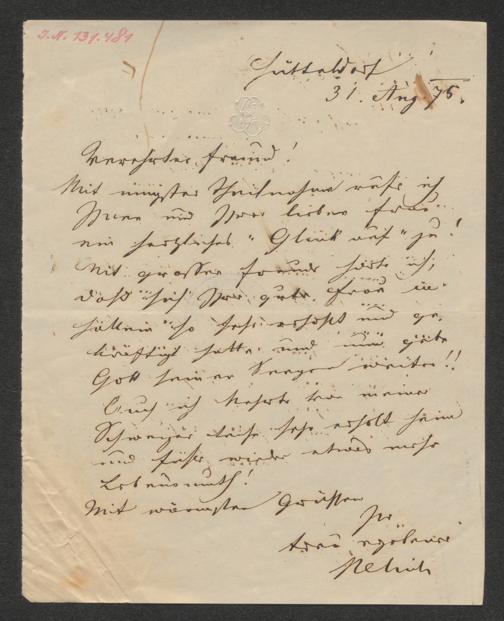 I.N. 131.481
Hütteldorf
31. Aug 75.
Verehrter Freund!
Mit innigster Theilnahme rufe ich
Ihnen und Ihrer lieben Frau
ein herzliches "Glück auf" zu!
Mit grosser Freude hörte ich,
daß sich Ihre gute Frau in
Hallein so sehr erholt und ge-
kräftigt hatte und nun gebe
Gott seinen Seegen weiter!!
Auch ich kehrte von meiner
Schweizer Reise sehr erholt heim
und fühle wieder etwas mehr
Lebensmuth!
Mit wärmsten Grüssen
Ihr
treu ergebener